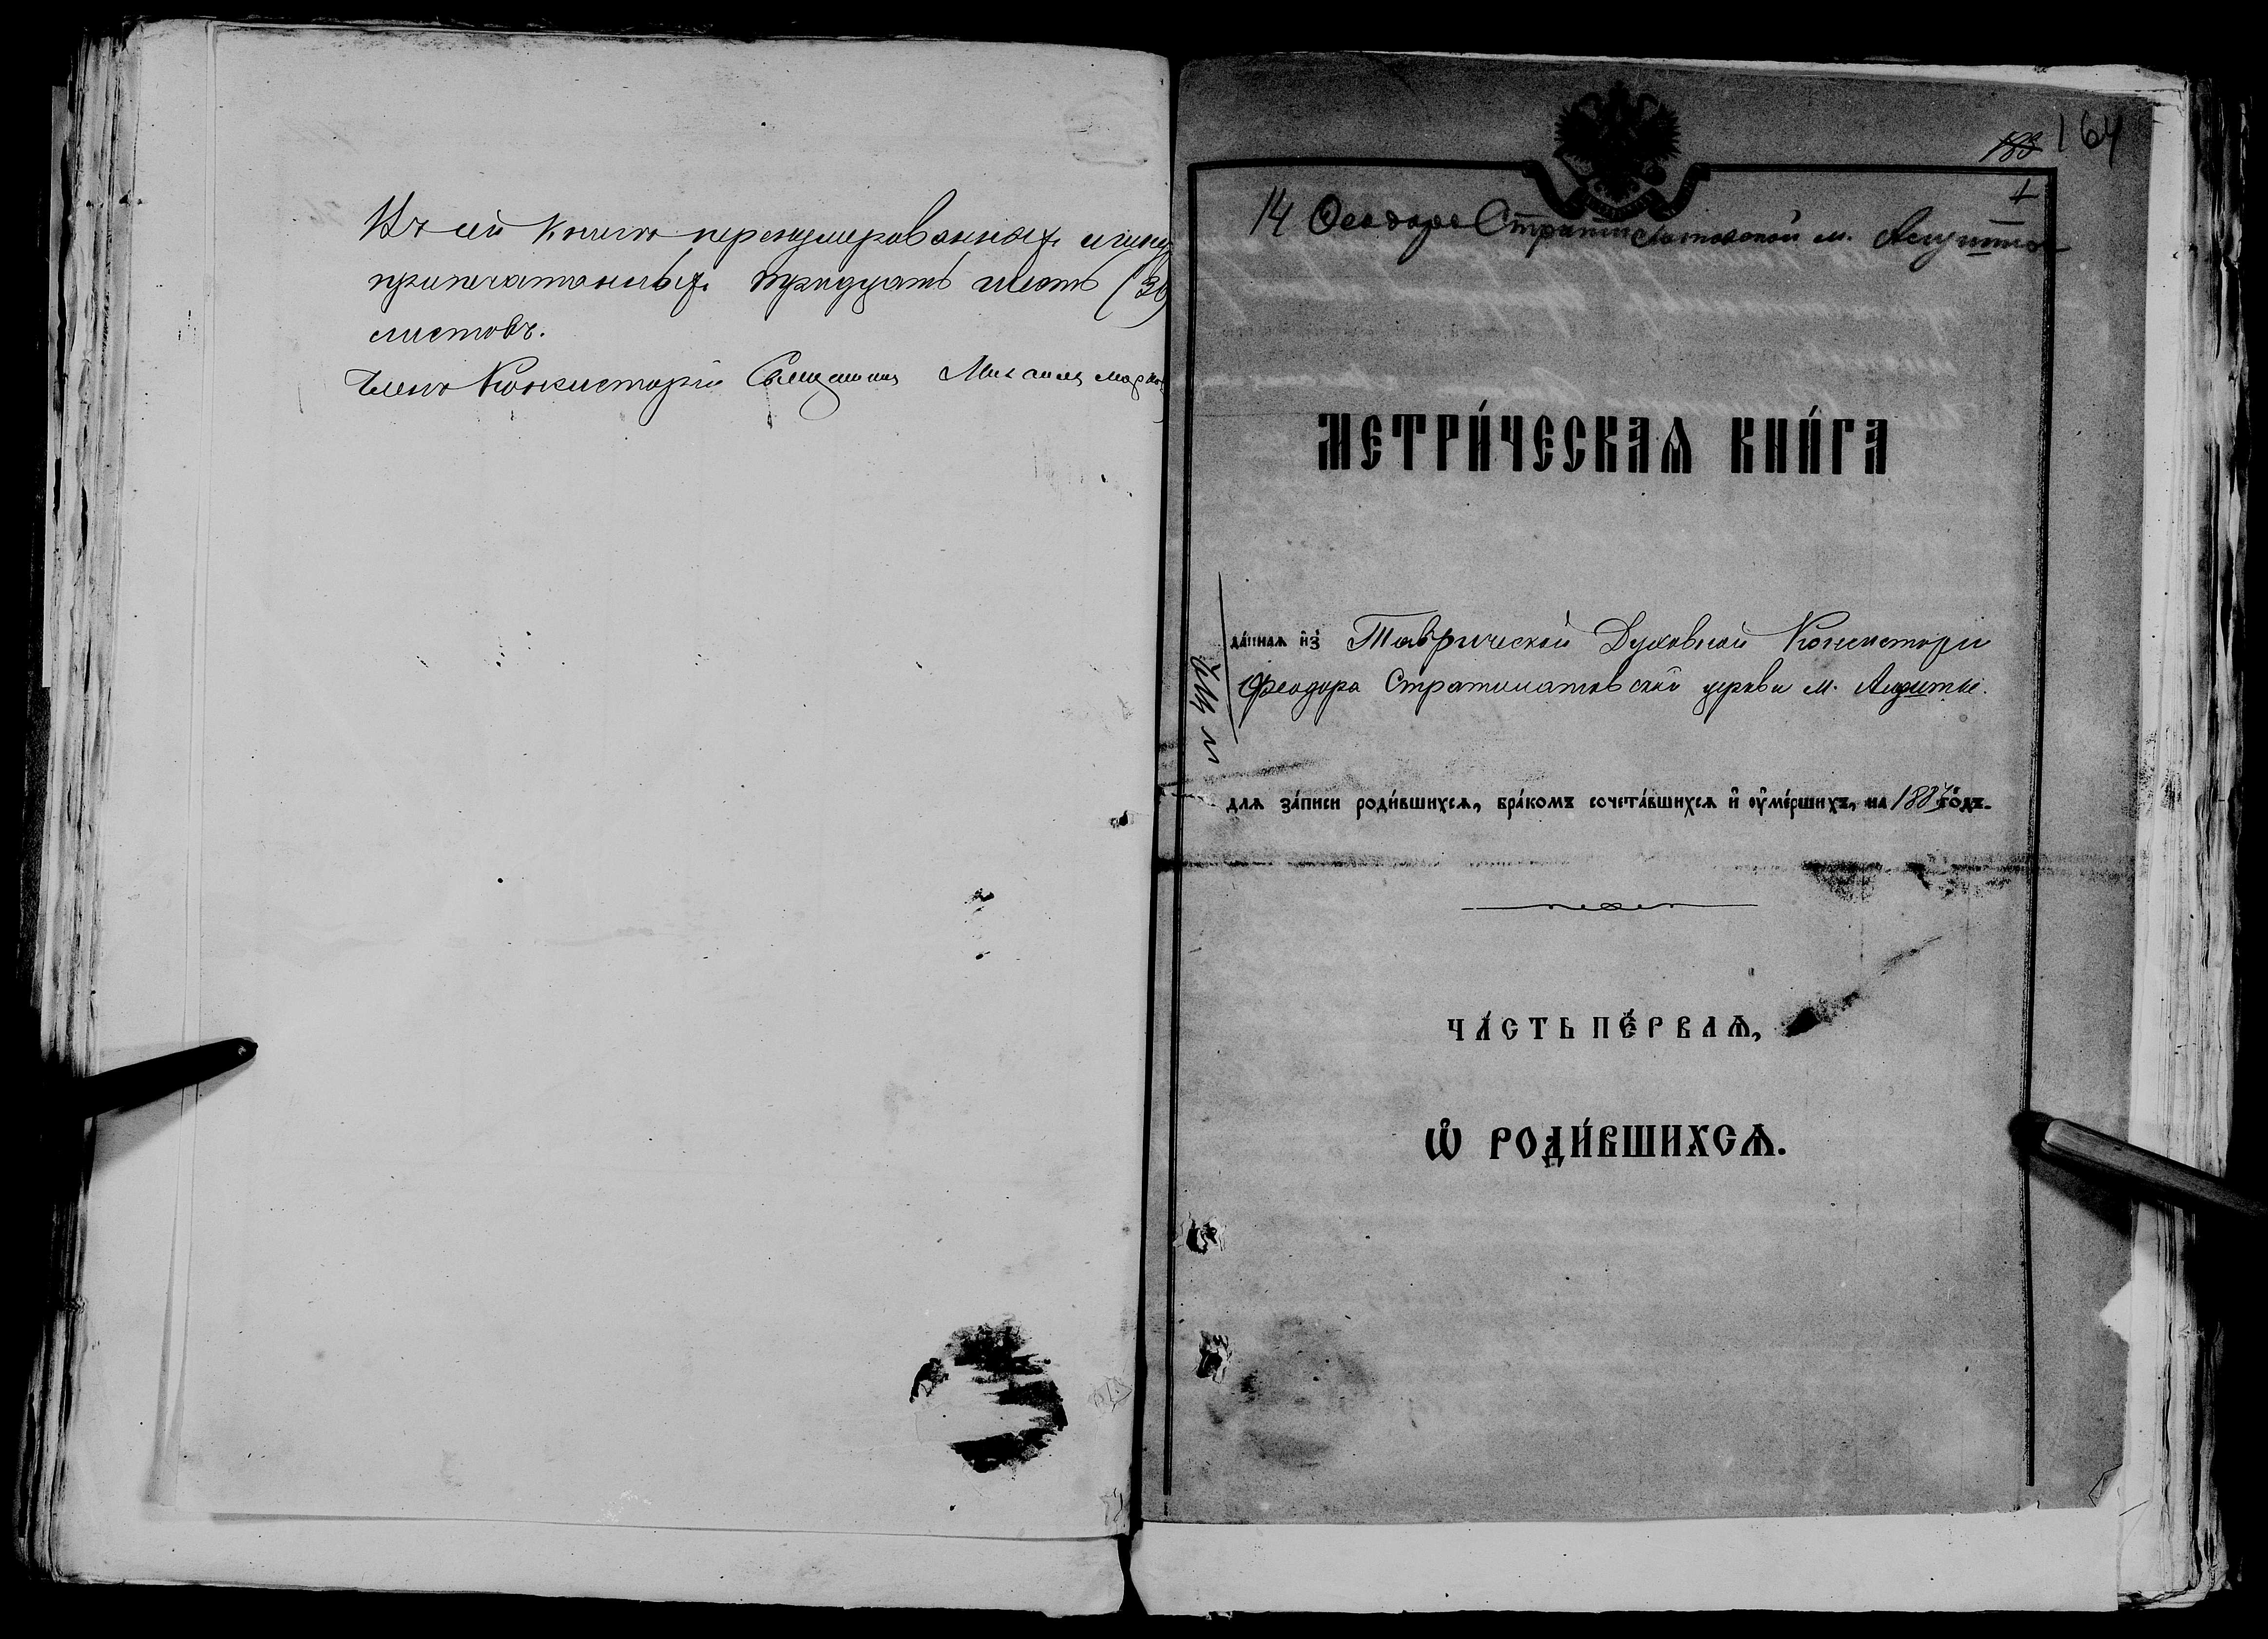 Въ сей книгѣ перенумерованныхъ и
припечатанныхъ тридцать шесть (36)
листовъ.
Членъ Консисторіи Священникъ Михаилъ
188 164
1
14 Ѳеодоро Стратилатовской м. Алушта
МЕТРИ́ЧЕСКАѦ КНИ́ГА
да́ннаѧ из̾ Таврической Духовной Консисторіи
Ѳеодора Стратилатовской церкви м. Алушты.
длѧ за́писи роди́вшихсѧ, бра́комъ сочета́вшихсѧ и҆ оу҆ме́ршихъ, на 1883 го́дъ.
ЧА́СТЬ ПЕ́РВАѦ,
Ѽ РОДИ́ВШИХСѦ.